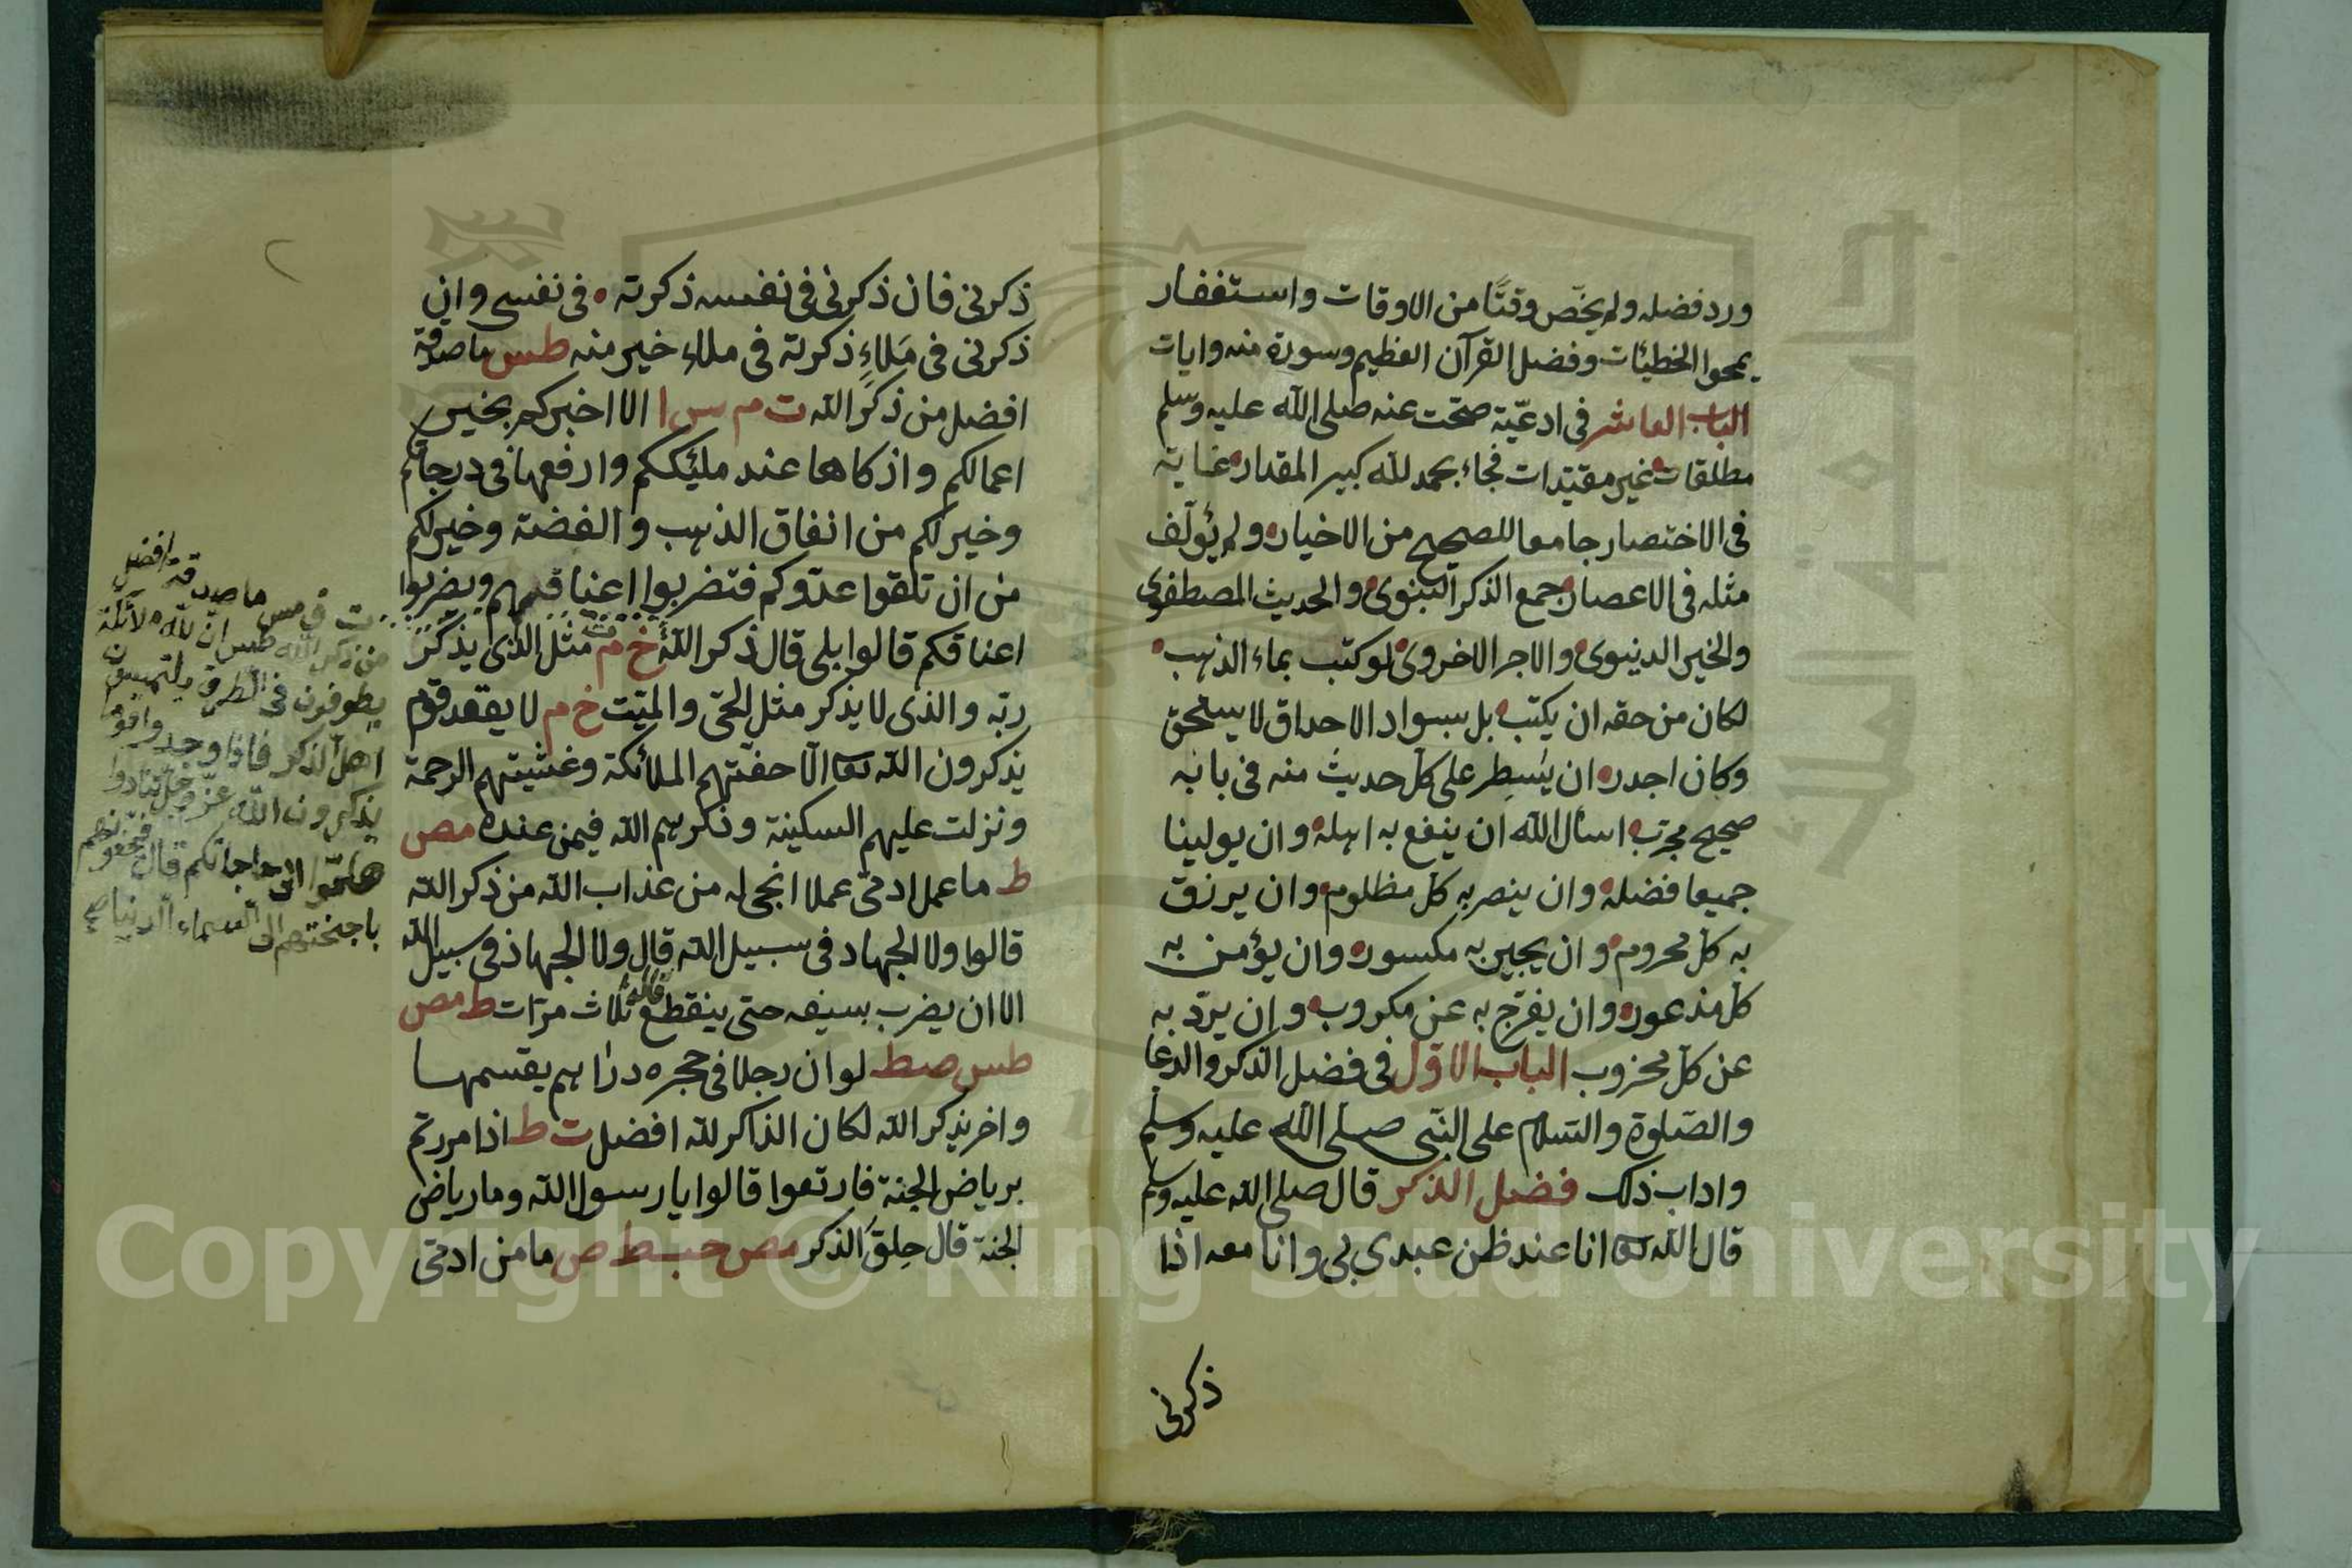 ورد فضله ولم يخّص وقتًا من الاوقات واستغفار
يمحوا الخطيئات وفضل القرآن العظيم وسورة منه وايات
الباب العاشر فى ادعيّة صحّت عنه صلى الله عليه وسلم
مطلقات غير مقيّدات فجاء بحمد لله كبير المقدار غاية
فى الاختصار جامعا للصحيح من الاخيار ولم يؤلّف
مثله فى الاعصار جمع الذكر النبوى والحديث المصطفوى
والخير الدنيوى والاجر الاخروى لو كتب بماء الذهب
لكان من حقه ان يكتب بل بسواد الاحداق لا يستحق
وكان اجدر ان يسطر على كل حديث منه فى بابه
صحيح مجرّب اسأل الله ان ينفع به اهله وان يولينا
جميعا فضله وان ينصر به كل مظلوم وان يرزق
به كل محروم وان يجبر به مكسور وان يؤمن به
كل مذعور وان يفرّج به عن مكروب وان يردّ به
عن كل محزوب الباب الاوّل فى فضل الذكر والدعا
والصّلوة والسّلام على النّبى صلى الله عليه وسلم
واداب ذلك فضل الذكر قال صلى الله عليه وسلم
قال الله تعا انا عند ظن عبدي بى وانا معه اذا
ذكرنى
ذكرنى فان ذكرنى فى نفسه ذكرته فى نفسى وان
ذكرنى فى مَلاءٍ ذكرته فى ملاء خير منه طس ما صدقة
افضل من ذكر الله ت م س ا الا اخبركم بخير
اعمالكم وازكاها عند مليككم وارفعها فى درجاتكم
وخير لكم من انفاق الذهب والفضة وخير لكم
من ان تلقوا عدّوكم فتضربوا اعناقهم ويضربوا
اعناقكم قالوا بلى قال ذكر الله خ م مثل الذى يذكر
ربّه والذى لا يذكر مثل الحىّ والميّت خ م لا يقعد قوم
يذكرون الله تعا الّا حفّتهم الملائكة وغشيتهم الرحمة
ونزلت عليهم السكينة وذكرهم الله فيمن عنده مص
ط ما عمل ادمىّ عملا انجى له من عذاب الله من ذكر الله
قالوا ولا الجهاد فى سبيل الله قال ولا الجهاد فى سبيل الله
الا ان يضرب بسيفه حتى ينقطع قاله ثلاث مرّات ط مص
طس صط لو ان رجلا فى حجره دراهم يقسمها
واخر يذكر الله لكان الذاكر لله افضل ت ط اذا مررتم
برياض الجنة فارتعوا قالوا يا رسول الله وما رياض
الجنة قال حِلَق الذكر مص حب ط ص ما من ادمىّ
ما صدقة افضل
من ذكر الله طس ان لله ملائكة
يطوفون فى الطرق يلتمسون
اهل الذكر فاذا وجدوا قومًا
يذكرون الله عزّ وجلّ تنادوا
هلمّوا الى حاجاتكم قال فيحفونهم
باجنحتهم الى السماء الدنيا
Copyright © King Saud University